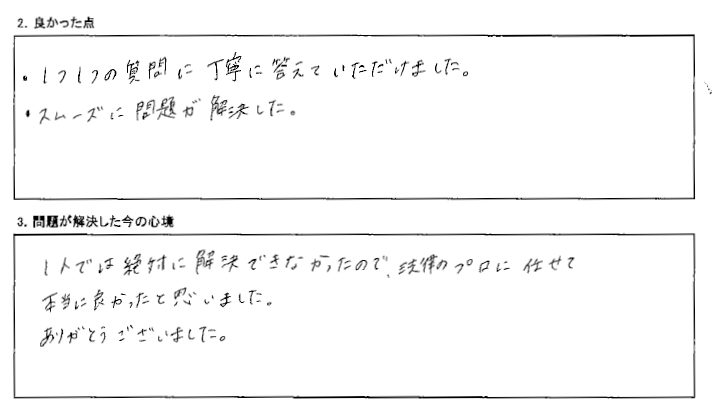 2. 良かった点
・1つ1つの質問に丁寧に答えていただけました。
・スムーズに問題が解決した。
3. 問題が解決した今の心境
1人では絶対に解決できなかったので、法律のプロに任せて
本当に良かったと思いました。
ありがとうございました。